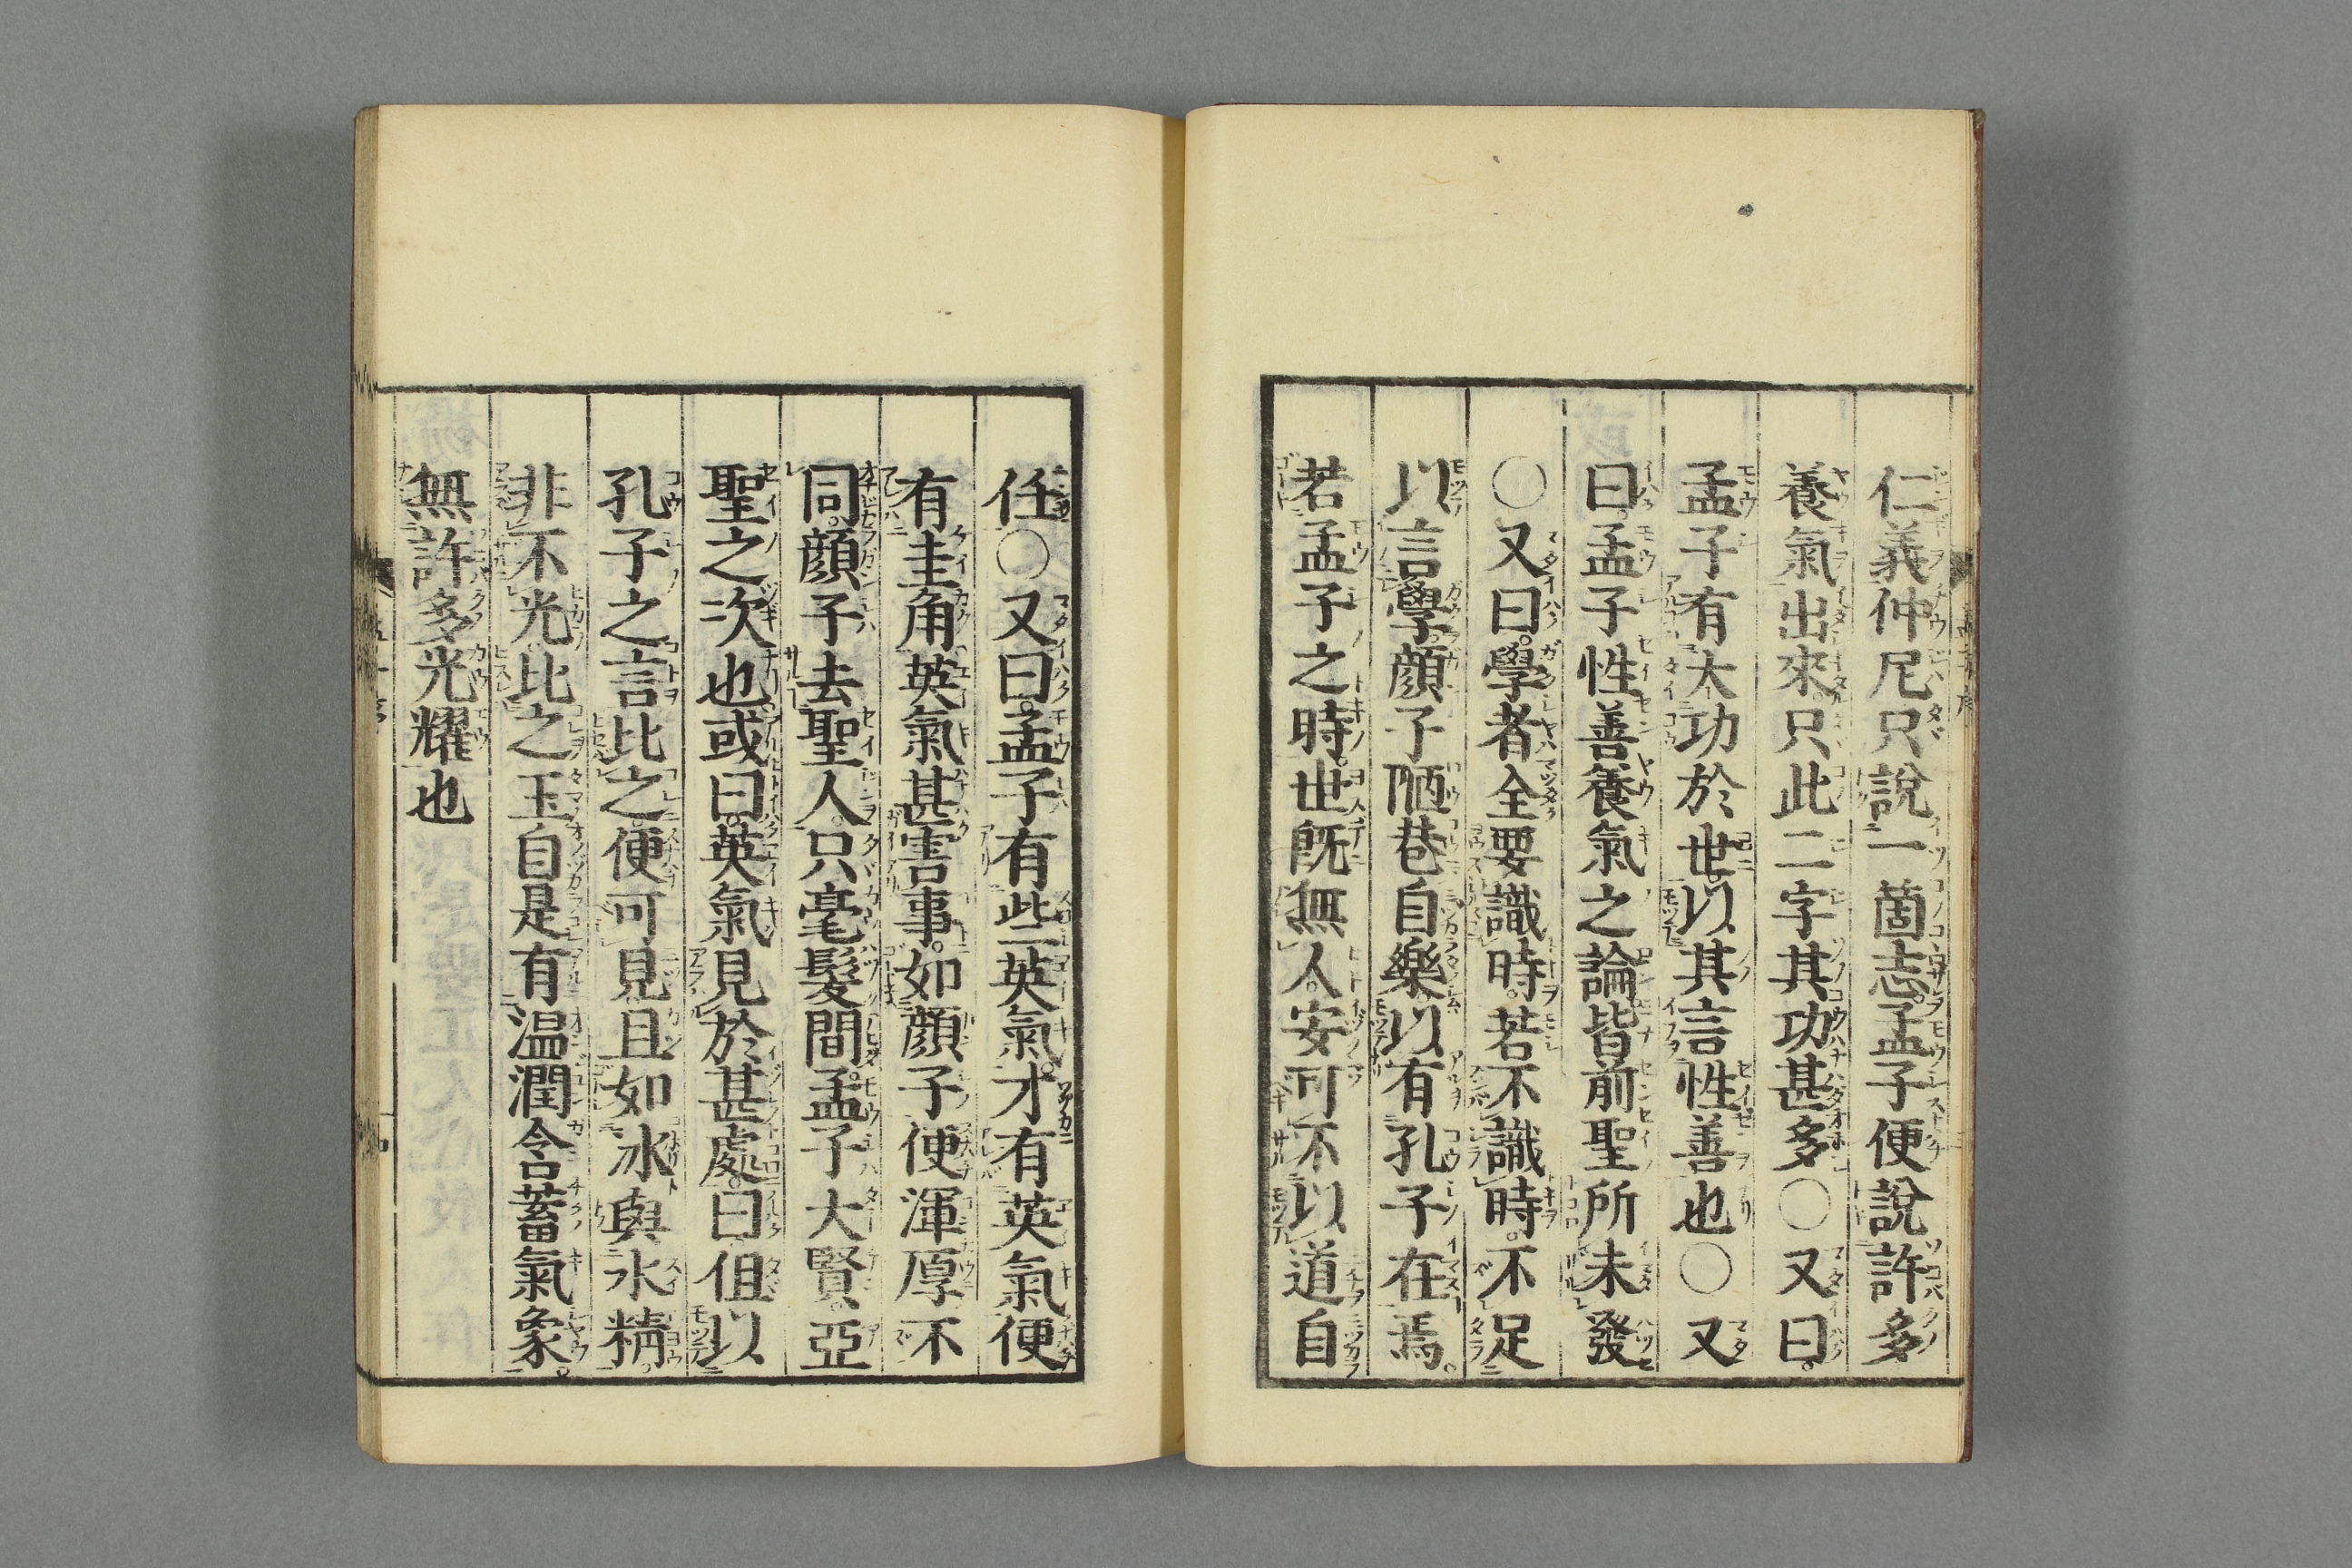 仁義仲尼只說一箇志。孟子便說許多
養氣出來只此二字其功甚多○又曰。
孟子有大功於世。以其言性善也○又
曰。孟子性善養氣之論。皆前聖所未發
○又曰。學者全要識時。若不識時。不足
以言學。顔子陋巷自樂。以有孔子在焉。
若孟子之時。世既無人。安可不以道自
任○又曰。孟子有些英氣。才有英氣便
有圭角。英氣甚害事。如顔子便渾厚不
同。顔子去聖人。只毫髮間。孟子大賢。亞
聖之次也或曰。英氣見於甚處。曰但以
孔子之言比之。便可見且如冰與水精。
非不光。比之玉自是有温潤含蓄氣象。
無許多光耀也